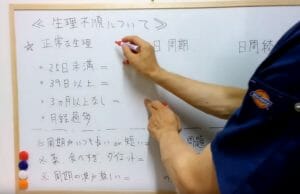 ≪ 生理不順について ≫
☆ 正常な生理 日周期 日間続
・25日未満 =
・39日以上 =
・3ヵ月以上なし =
・月経過多
※ 周期がいつも長い or 短い =
※ 薬、食べすぎ、ダイエット =
※ 周期の差が激しい =
Dickies